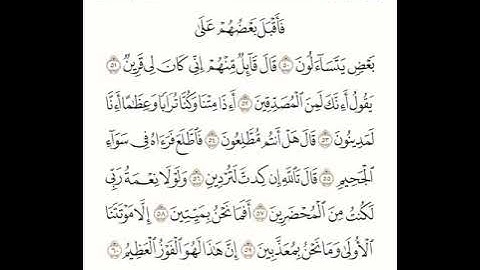 فَأَقْبَلَ بَعْضُهُمْ عَلَىٰ
بَعْضٍ يَتَسَآءَلُونَ ٥٠ قَالَ قَآئِلٌ مِّنْهُمْ إِنِّى كَانَ لِى قَرِينٌ ٥١
يَقُولُ أَءِنَّكَ لَمِنَ ٱلْمُصَدِّقِينَ ٥٢ أَءِذَا مِتْنَا وَكُنَّا تُرَابًا وَعِظَـٰمًا أَءِنَّا
لَمَدِينُونَ ٥٣ قَالَ هَلْ أَنتُم مُّطَّلِعُونَ ٥٤ فَٱطَّلَعَ فَرَءَاهُ فِى سَوَآءِ
ٱلْجَحِيمِ ٥٥ قَالَ تَٱللَّهِ إِن كِدتَّ لَتُرْدِينِ ٥٦ وَلَوْلَا نِعْمَةُ رَبِّى
لَكُنتُ مِنَ ٱلْمُحْضَرِينَ ٥٧ أَفَمَا نَحْنُ بِمَيِّتِينَ ٥٨ إِلَّا مَوْتَتَنَا
ٱلْأُولَىٰ وَمَا نَحْنُ بِمُعَذَّبِينَ ٥٩ إِنَّ هَـٰذَا لَهُوَ ٱلْفَوْزُ ٱلْعَظِيمُ ٦٠